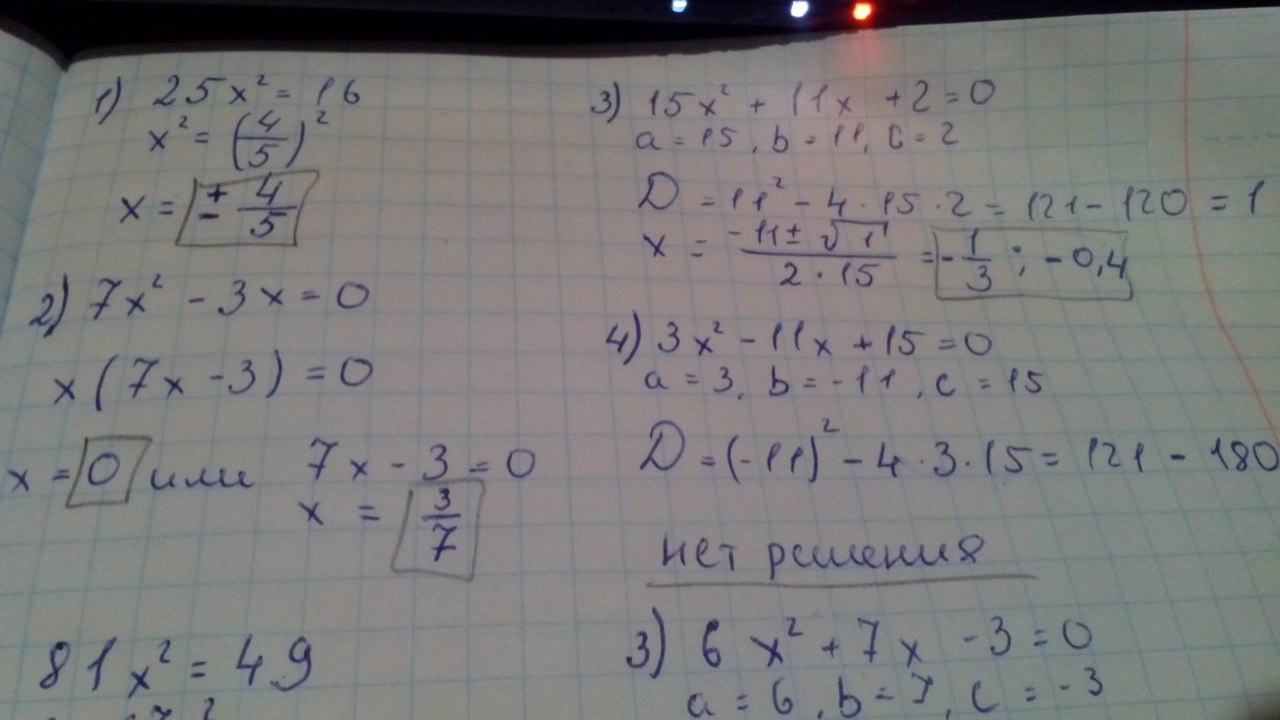 1) 25x² = 16
x² = (4/5)²
x = ± 4/5
2) 7x² - 3x = 0
x(7x - 3) = 0
x = 0 или 7x - 3 = 0
x = 3/7
81x² = 49
3) 15x² + 11x + 2 = 0
a = 15, b = 11, c = 2
D = 11² - 4·15·2 = 121 - 120 = 1
x = (-11 ± √1)/(2·15) = -1/3 ; -0,4
4) 3x² - 11x + 15 = 0
a = 3, b = -11, c = 15
D = (-11)² - 4·3·15 = 121 - 180
нет решения
3) 6x² + 7x - 3 = 0
a = 6, b = 7, c = -3